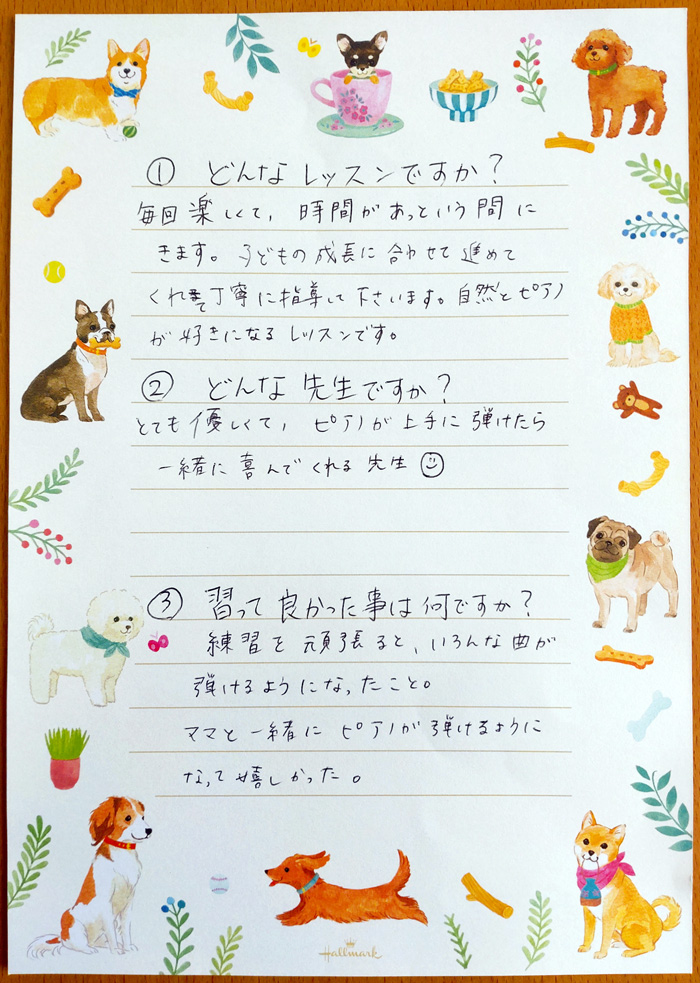 ① どんなレッスンですか?
毎回楽しくて、時間があっという間に
きます。子どもの成長に合わせて進めて
くれて丁寧に指導して下さいます。自然とピアノ
が好きになるレッスンです。
② どんな先生ですか?
とても優しくて、ピアノが上手に弾けたら
一緒に喜んでくれる先生
③ 習って良かった事は何ですか?
練習を頑張ると、いろんな曲が
弾けるようになったこと。
ママと一緒にピアノが弾けるように
なって嬉しかった。
Hallmark